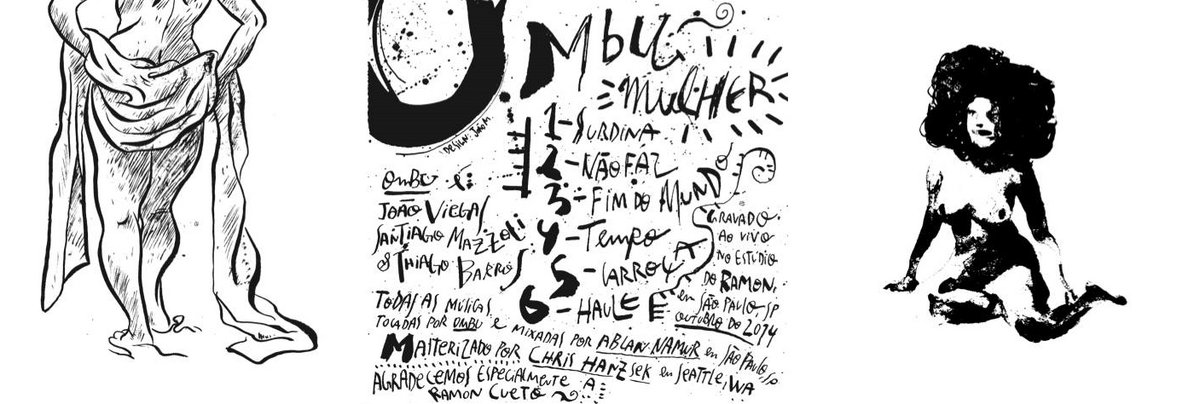 OMBU
MULHER
DESIGN: 
1-SURDINA
2-NÃO FAZ
3-FIM DO MUNDO
4-TEMPO
5-CARROÇA
6-HALLE
OMBU É:
JOÃO VIEGAS
SANTIAGO MAZZOLI
& THIAGO BARROS
GRAVADO
AO VIVO
NO ESTÚDIO
DO RAMON,
em SÃO PAULO, SP
OUTUBRO DO 2014
TODAS AS MÚSICAS
TOCADAS POR OMBU E MIXADAS POR ABLAN NAMUR em SÃO PAULO, SP
MASTERIZADO POR CHRIS HANZSEK em SEATTLE, WA
AGRADECEMOS ESPECIALMENTE A
RAMON CUETO